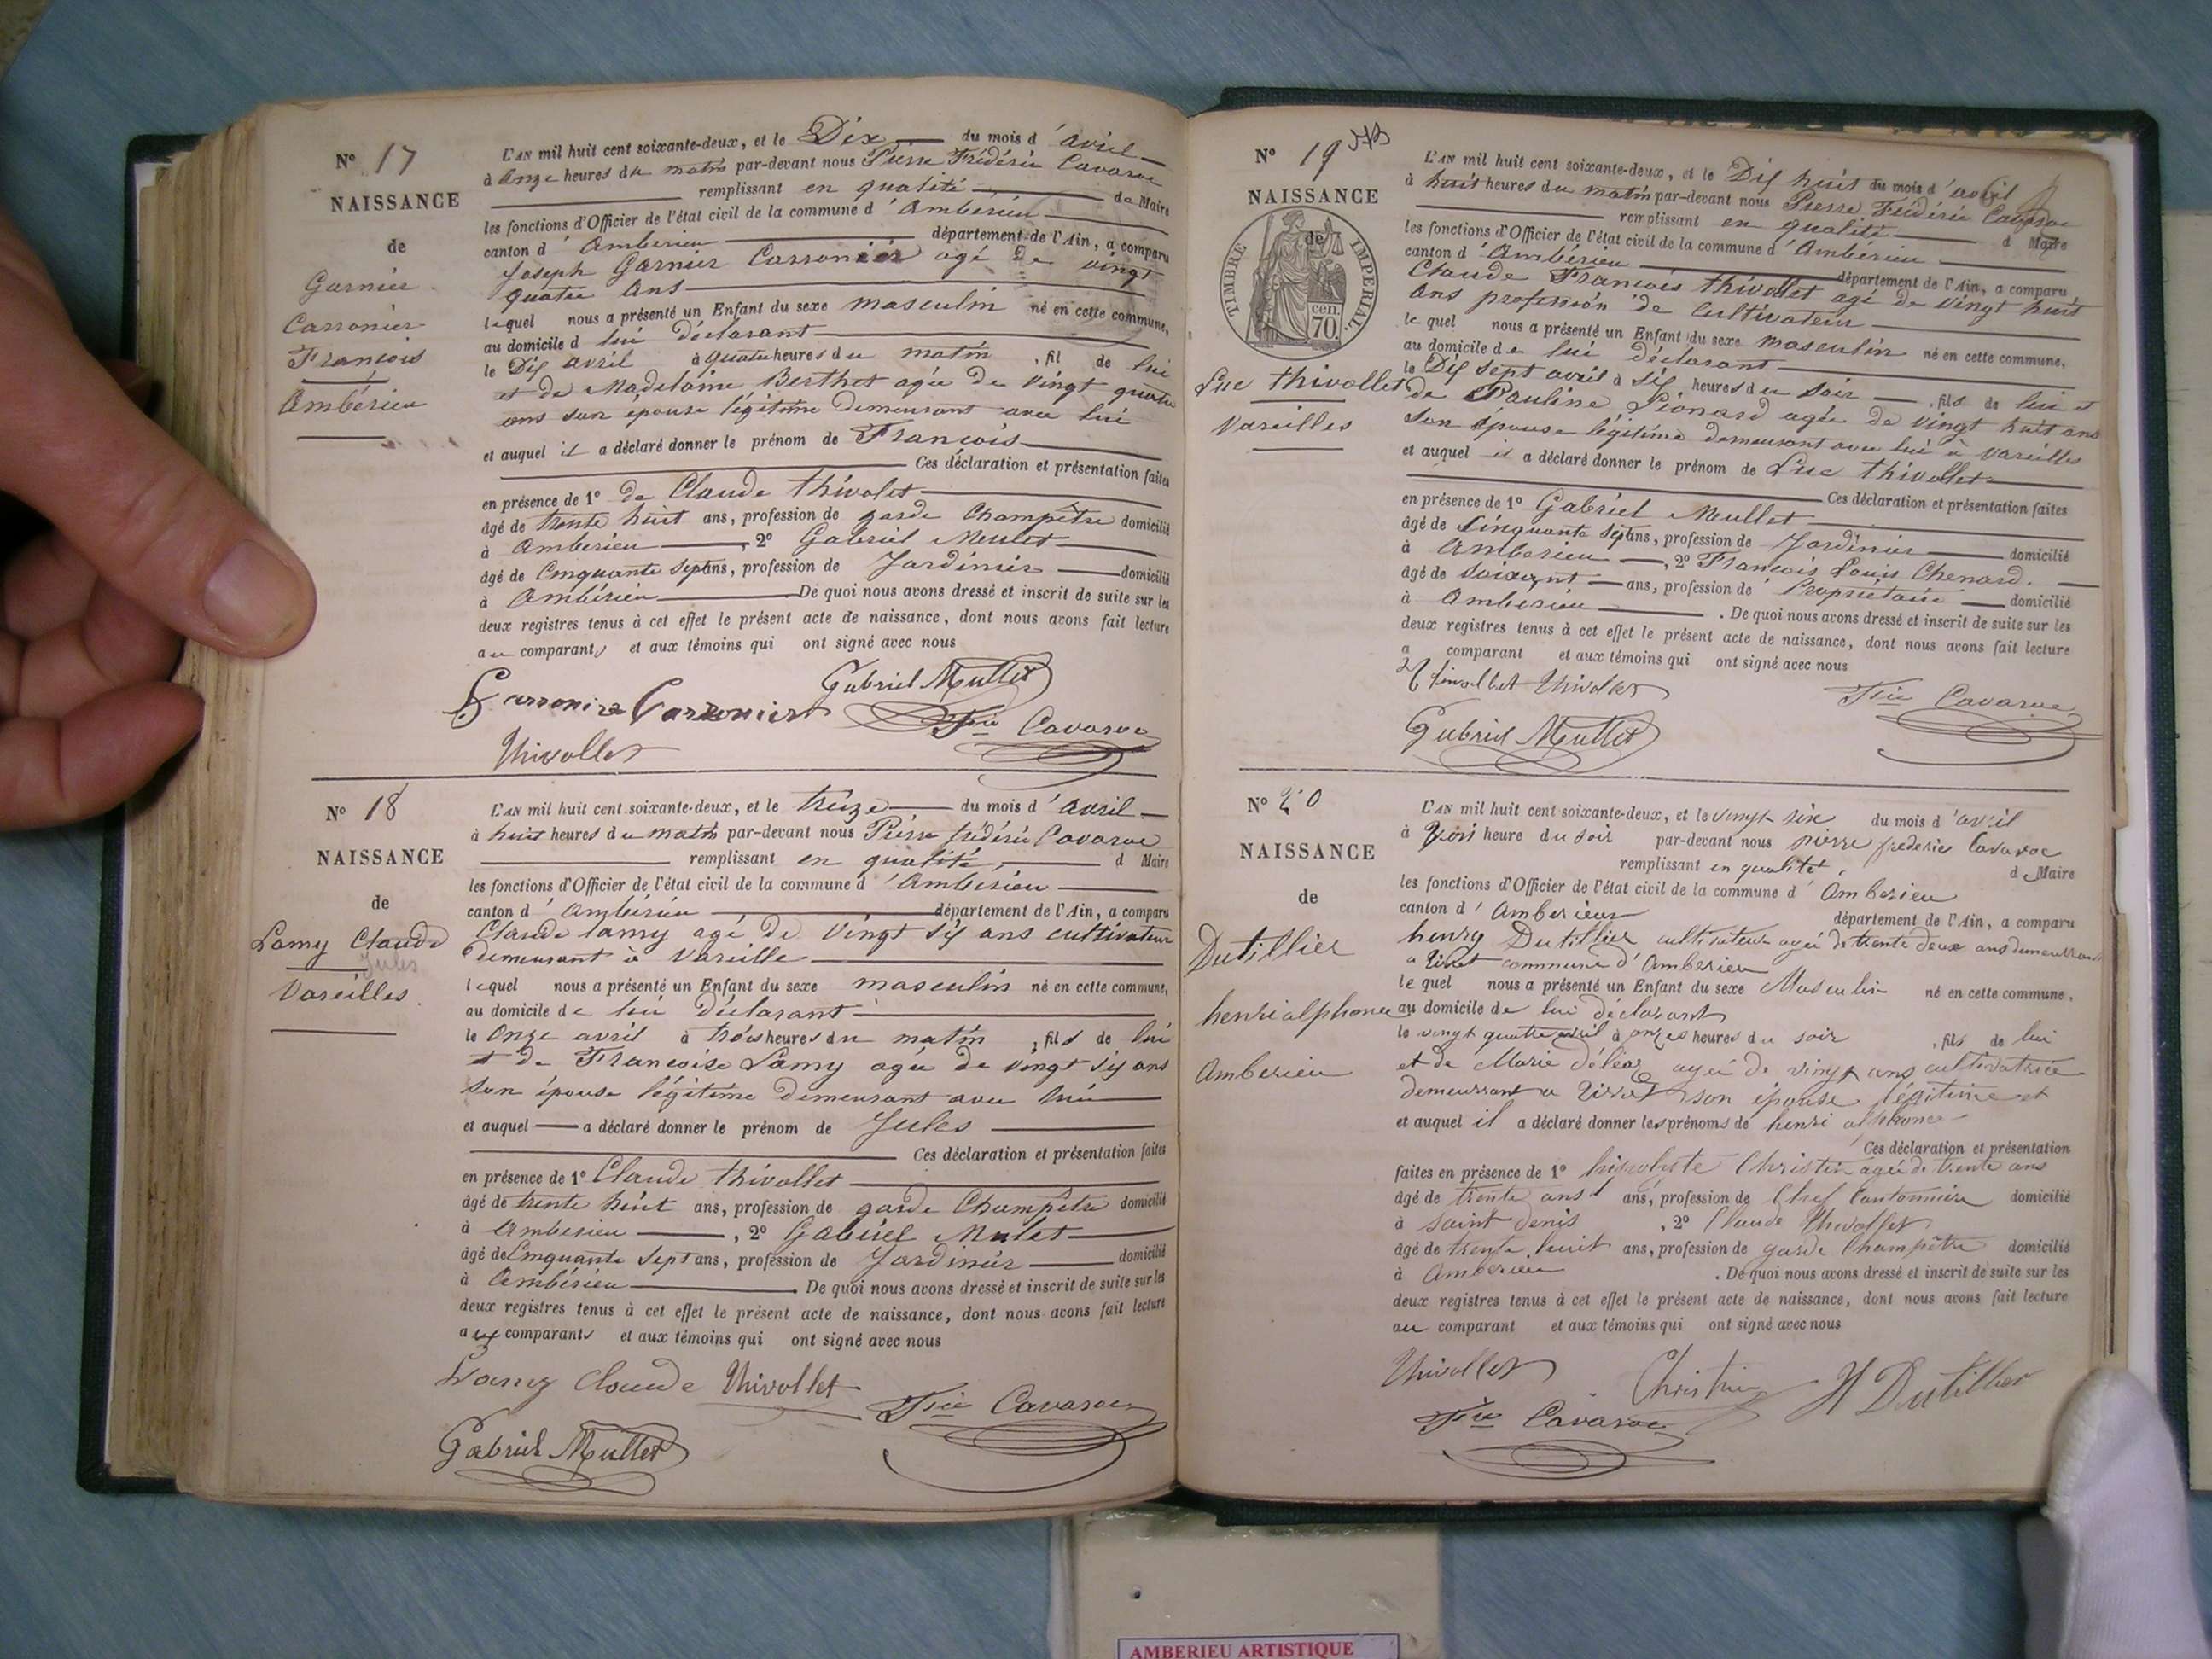 N° 17
NAISSANCE
de
Garnier
Carronier
François
Ambérieu
L'AN mil huit cent soixante-deux, et le Dix du mois d'avril
à Onze heures du matin par-devant nous Pierre Frédéric Cavaroc
remplissant en qualité de Maire
les fonctions d'Officier de l'état civil de la commune d'Ambérieu
canton d'Ambérieu département de l'Ain, a comparu
Joseph Garnier Carronier agé de vingt
quatre ans
lequel nous a présenté un Enfant du sexe masculin né en cette commune,
au domicile d lui déclarant
le Dix avril à quatre heures du matin, fil de lui
et de Madelaine Berthet agée de vingt quatre
ans son épouse légitime demeurant avec lui
et auquel il a déclaré donner le prénom de François
Ces déclaration et présentation faites
en présence de 1° de Claude thivolet
âgé de trente huit ans, profession de garde Champêtre domicilié
à Amberieu, 2° Gabriel Meulet
âgé de Cinquante Sept ans, profession de Jardinier domicilié
à Ambérieu De quoi nous avons dressé et inscrit de suite sur les
deux registres tenus à cet effet le présent acte de naissance, dont nous avons fait lecture
au comparant et aux témoins qui ont signé avec nous
Carronier Gabriel Mullet
Fric Cavaroc
Thivollet
N° 18
NAISSANCE
de
Lamy Claude
Jules
Vareilles.
L'AN mil huit cent soixante-deux, et le treize du mois d'avril
à huit heures du matin par-devant nous Pierre frédéric Cavaroc
remplissant en qualité, d Maire
les fonctions d'Officier de l'état civil de la commune d'Ambérieu
canton d'Ambérieu département de l'Ain, a comparu
Claude lamy agé de Vingt six ans cultivateur
demeurant à Vareille
lequel nous a présenté un Enfant du sexe masculin né en cette commune,
au domicile de lui déclarant
le Onze avril à trois heures du matin, fils de lui
et de Françoise Lamy agée de vingt six ans
son épouse légitime demeurant avec lui
et auquel a déclaré donner le prénom de Jules
Ces déclaration et présentation faites
en présence de 1° Claude thivollet
âgé de trente huit ans, profession de garde Champêtre domicilié
à Amberieu, 2° Gabriel Mulet
âgé de Cinquante Sept ans, profession de Jardinier domicilié
à Ambérieu De quoi nous avons dressé et inscrit de suite sur les
deux registres tenus à cet effet le présent acte de naissance, dont nous avons fait lecture
aux comparants et aux témoins qui ont signé avec nous
Lamy Claude Thivollet
Fric Cavaroc
Gabriel Mullet
N° 19
NAISSANCE
de
TIMBRE IMPERIAL.
70 cen.
Luc thivollet
Vareilles
L'AN mil huit cent soixante-deux, et le Dix huit du mois d'avril
à huit heures du matin par-devant nous Pierre Frédéric Cavaroc
remplissant en qualité d Maire
les fonctions d'Officier de l'état civil de la commune d'Ambérieu
canton d'Ambérieu département de l'Ain, a comparu
Claude François thivollet agé de vingt huit
ans profession de Cultivateur
le quel nous a présenté un Enfant du sexe masculin né en cette commune,
au domicile de lui déclarant
le Dix sept avril à six heures du soir, fils de lui et
de Pauline Léonard agée de vingt huit ans
son épouse légitime demeurant avec lui à Vareilles
et auquel il a déclaré donner le prénom de Luc thivollet
Ces déclaration et présentation faites
en présence de 1° Gabriel Meullet
âgé de Cinquante Sept ans, profession de Jardinier domicilié
à Amberieu, 2° François Louis Chenard.
âgé de soixant ans, profession de Propriétaire domicilié
à Amberieu. De quoi nous avons dressé et inscrit de suite sur les
deux registres tenus à cet effet le présent acte de naissance, dont nous avons fait lecture
a comparant et aux témoins qui ont signé avec nous
Thivollet
Fric Cavaroc
Gabriel Mullet
N° 20
NAISSANCE
de
Dutillier
henri alphonce
Amberieu
L'AN mil huit cent soixante-deux, et le vingt six du mois d'avril
à trois heure du soir par-devant nous pierre frederic Cavaroc
remplissant en qualité de Maire
les fonctions d'Officier de l'état civil de la commune d'Amberieu
canton d'Amberieux département de l'Ain, a comparu
henry Dutillier cultivateur agé de trente deux ans demeurant
a Tiret commune d'Amberieu
le quel nous a présenté un Enfant du sexe Masculin né en cette commune.
au domicile de lui déclarant
le vingt quatre avril à onzes heures du soir, fils de lui
et de Marie agée de vingt ans cultivatrice
demeurant a Tiret son épouse légitime et
et auquel il a déclaré donner les prénoms de henri alphonce
Ces déclaration et présentation
faites en présence de 1° hippolyte Christin agée de trente ans
âgé de trente ans ans, profession de Chef Cantonnier domicilié
à saint denis, 2° Claude Thivollet
âgé de trente huit ans, profession de garde Champêtre domicilié
à Amberieu. De quoi nous avons dressé et inscrit de suite sur les
deux registres tenus à cet effet le présent acte de naissance, dont nous avons fait lecture
au comparant et aux témoins qui ont signé avec nous
Thivollet Christin H Dutillier
Fric Cavaroc
AMBERIEU ARTISTIQUE